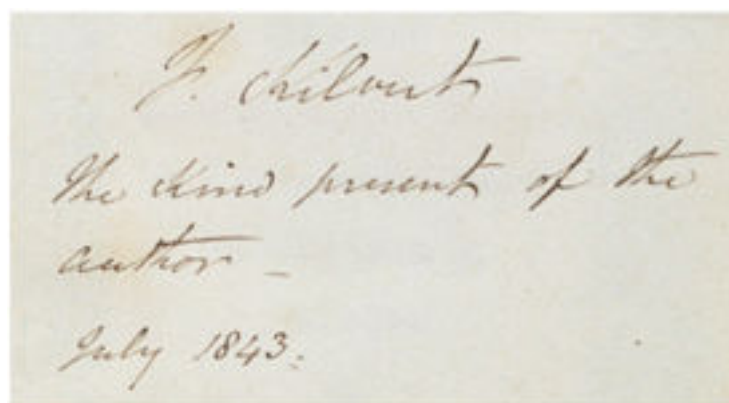 F. Kilvert
The kind present of the
author -
July 1843.